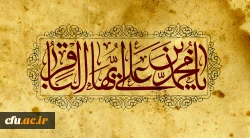 یا محمد بن علی ایها الباقر
cfu.ac.ir